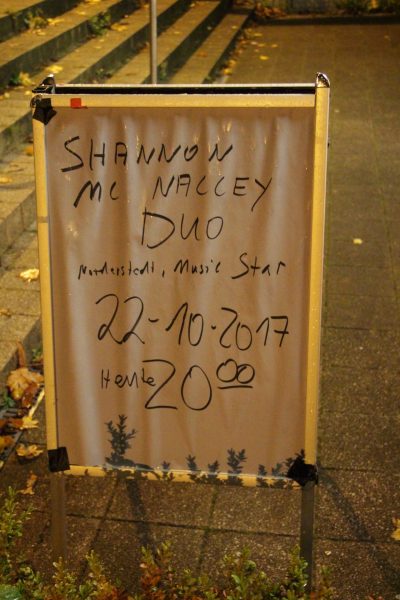 SHANNON
MC NALLEY
DUO
Norderstedt, Music Star
22-10-2017
Heute 20 00